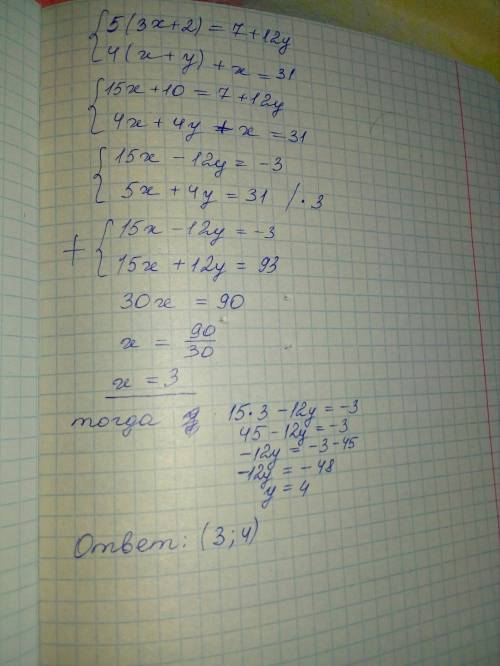 {5(3x+2) = 7+12y
4(x+y)+x = 31
{15x+10 = 7+12y
4x+4y+x = 31
{15x-12y = -3
5x+4y = 31 /·3
+ {15x-12y = -3
15x+12y = 93
30x = 90
x = 90/30
x = 3
тогда y 15·3-12y = -3
45-12y = -3
-12y = -3-45
-12y = -48
y = 4
Ответ: (3;4)